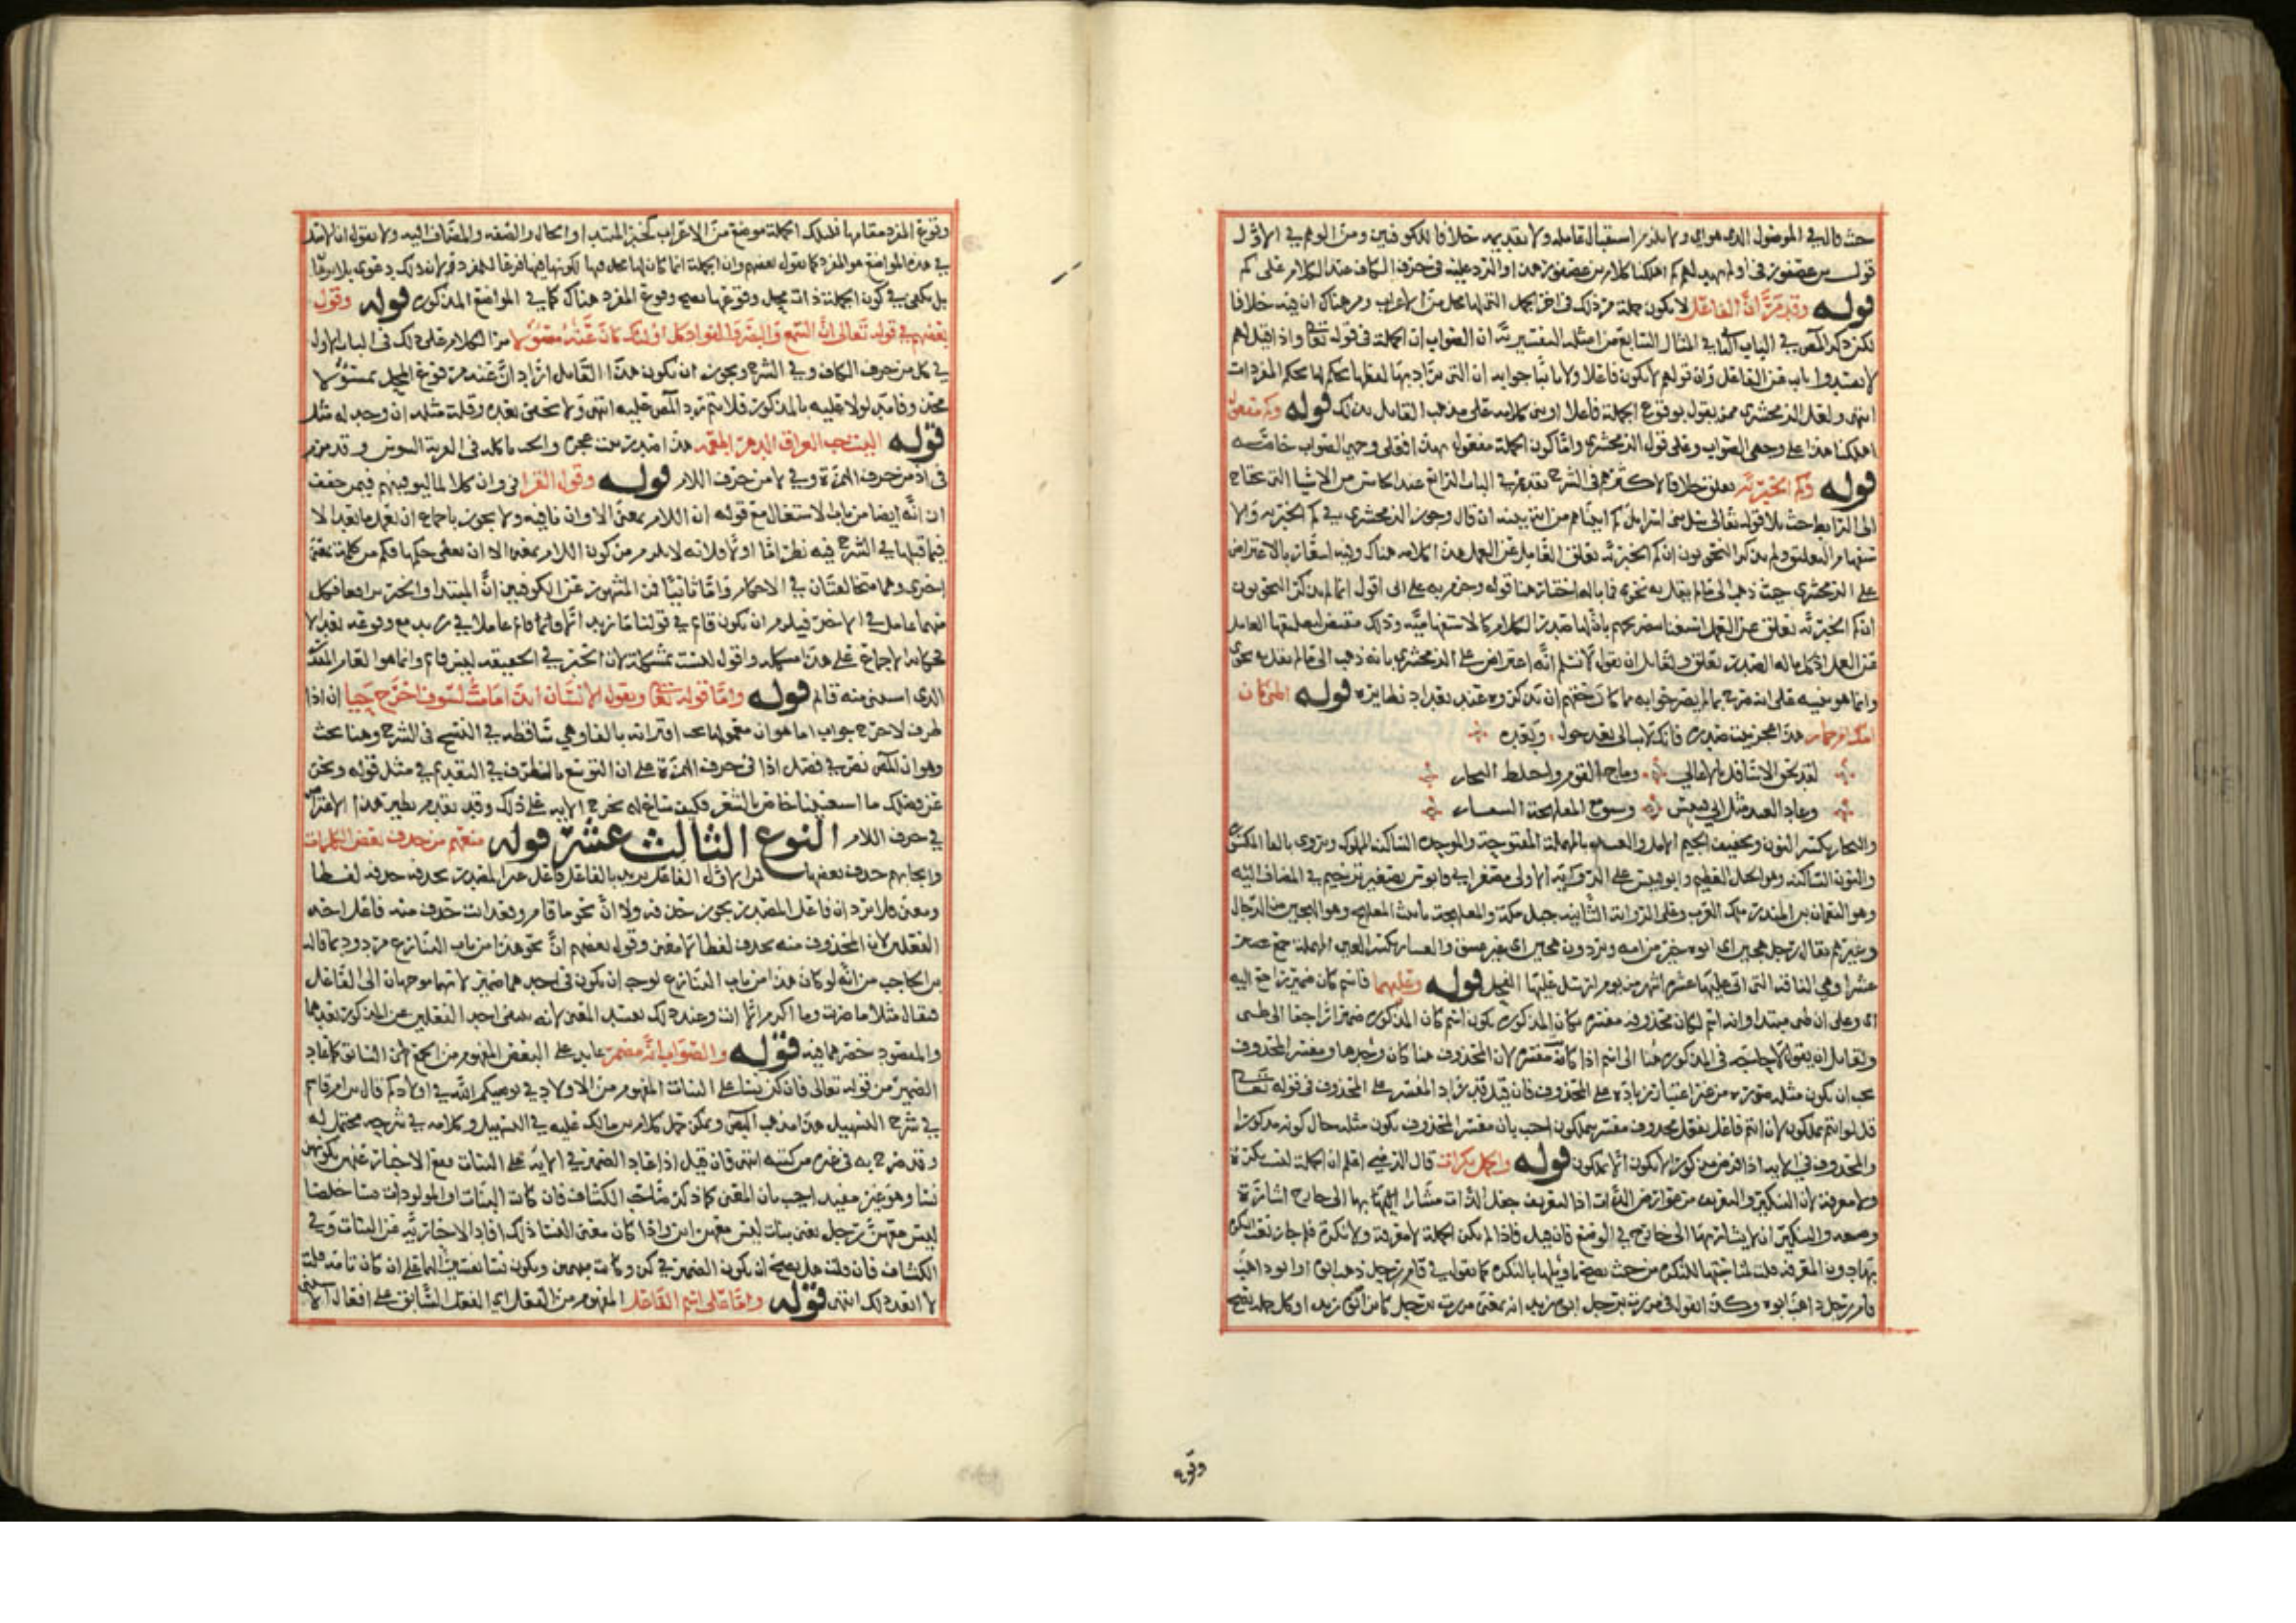 حيث قال في الموصول الذي هو اي ولا يلزم استقبال عامله ولا تقديمه خلافا للكوفيين ومن الوهم في الاول
قول بن عصفور في اولم يهد لهم كم اهلكنا كلام بن عصفور هذا والرد عليه في حرف الكاف عند الكلام على كم
قوله وقد مر ان الفاعل لا يكون جملة مر ذلك في اخر الجمل التي لها محل من الاعراب ومر هناك ان فيه خلافا
لكن ذكر المص في الباب في المثال السابع من امثلة التفسيرية ان الصواب ان الجملة في قوله تعا واذا قيل لهم
لا تفسدوا نايب عن الفاعل وان قولهم لا يكون فاعلا ولا نايبا جوابه ان التي يراد بها لفظها يحكم لها بحكم المفردات
انتهى ولعل الزمخشري ممن يقول بوقوع الجملة فاعلا او بنى كلامه على مذهب القايل بذلك قوله وكم مفعول
اهلكنا هذا على وجهي الصواب وعلى قول الزمخشري واما كون الجملة مفعول يهد فعلى وجهي الصواب خاصة
قوله وكم الخبرية تعلق خلافا لاكثرهم في الشرح تقدم في الباب الرابع عند الكلام من الاشيا التي تحتاج
الى الرابط حيث تلا قوله تعالى سل بني اسرايل كم اتيناهم من اية بينة ان قال وجوز الزمخشري في كم الخبرية والا
ستفهام ولم يذكر النحويون ان كم الخبرية تعلق العامل عن العمل هذا كلامه هناك وفيه اشعار بالاعتراض
على الزمخشري حيث ذهب الى ما لم يقل به نحوي فما باله اختاره هنا قوله وجزم به على اني اقول انما لم يذكر النحويون
ان كم الخبرية تعلق عن العمل استغنا بتصريحهم بان لها صدر الكلام كالاستفهامية وذلك مقتض لتعليقها العامل
عن العمل اذ كل ما له الصدر تعلق ولقايل ان يقول لا نسلم انه اعتراض على الزمخشري بانه ذهب الى ما لم يقل به نحوي
وانما هو تنبيه على انه صرح بما لم يصرحوا به مما كان حقهم ان يذكروه عند تعداد نظايره قوله اظبي كان
امك ام حمار هذا عجز بيت صدره فانك لا تبالي بعد حول وبعده
لقد لحق الاسافل بالاعالي وماج القوم واختلط النجار
وعاد العبد مثل ابي قبيس وسيق مع المعلهجة العشار
والنجار بكسر النون وتخفيف الجيم الاصل والعبد بالمهملة المفتوحة والموحدة الساكنة المملوك ويروى بالفا المكسورة
والنون الساكنة وهو الجبل العظيم وابو قبيس على الرواية الاولى مصغر ابي قابوس تصغير ترخيم في المضاف اليه
وهو النعمان بن المنذر ملك العرب وعلى الرواية الثانية جبل مكة والمعلهجة تانيث المعلهج وهو الهجين من الرجال
وغيرهم يقال رجل هجين اي ابوه خير من امه وبرذون هجين اي غير عتيق والعشار بكسر العين المهملة جمع
عشرا وهي الناقة التي اتى عليها عشرة اشهر من يوم ارسل عليها الفحل قوله وعليهما فاسم كان ضمير راجع اليه
اي وعلى ان ظبي مبتدا وانه اسم لكان محذوفة مفسرة بكان المذكورة يكون اسم كان المذكورة ضميرا راجعا الى ظبي
ولقايل ان يقول لا حاجة في المذكورة هنا الى اسم اذا كانت مفسرة لان المحذوف هنا كان وحدها ومفسر المحذوف
يجب ان يكون مثله من غير اعتبار زيادة على المحذوف فان قيل قد زاد المفسر على المحذوف في قوله تعا
قل لو انتم تملكون لان انتم فاعل بفعل محذوف مفسر بتملكون اجيب بان مفسر المحذوف يكون مثله حال كونه مذكورا
والمحذوف في الاية اذا فرض مذكورا لا يكون الا تملكون قوله والجمل نكرات قال الرضي اعلم ان الجملة ليست نكرة
ولا معرفة لان التنكير والتعريف من عوارض الذات اذا التعريف جعل الذات مشارا بها الى خارج اشارة
وضعية والتنكير ان لا يشار بها الى خارج في الوضع فان قيل فاذا لم تكن الجملة لا معرفة ولا نكرة فلم جاز نعت النكرة
بها دون المعرفة قلت لمناسبتها للنكرة من حيث يصح تاويلها بالنكرة كما تقول في قام رجل ذهب ابوه او ابوه ذاهب
قام رجل ذاهب ابوه وكذا تقول في مررت برجل ابوه زيد انه بمعنى مررت برجل كاين ابوه زيد اوكل جملة يصح
وقوع
وقوع المفرد مقامها فلتلك الجملة موضع من الاعراب كخبر المبتدا والحال والصفة والمضاف اليه ولا نقول ان الاصل
في هذه المواضع هو المفرد كما يقول بعضهم وان الجملة انما كان لها محل فيها لكونها فرعا للمفرد لان ذلك دعوى بلا برهان
بل يكفي في كون الجملة ذات محل وقوعها موقعا يصح وقوع المفرد هناك كما في المواضع المذكورة قوله وقول
بعضهم في قوله تعالى ان السمع والبصر والفواد كل اولئك كان عنه مسؤولا مر الكلام على ذلك في الباب الاول
في كل من حرف الكاف وفي الشرح ويجوز ان يكون هذا القايل اراد ان عنه مرفوع المحل بمسؤولا
محذوفا مدلولا عليه بالمذكور فلا يتم رد المص عليه انتهى ولا يخفى بعده وقلة مثله ان وجد له مثل
قوله اليت حب العراق الدهر اطعمه هذا صدر بيت عجزه والحب ياكله في القرية السوس وقد مر
في اذ من حرف الهمزة وفي لا من حرف اللام قوله وقول الفرا في وان كلا لما ليوفينهم فيمن خفف
ان انه ايضا من باب الاشتغال مع قوله ان اللام بمعنى الا وان نافية ولا يجوز باجماع ان يعمل ما بعد الا
فيما قبلها في الشرح فيه نظر اما اولا فلانه لا يلزم من كون اللام بمعنى الا ان تعطى حكمها فكم من كلمة بمعنى
اخرى وهما متخالفتان في الاحكام واما ثانيا فان المشهور عن الكوفيين ان المبتدا والخبر ترافعا فكل
منهما عامل في الاخر فيلزم ان يكون قام في قولنا ما زيد الا قام عاملا في زيد مع وقوعه بعد الا
فحكاية الاجماع على هذا مشكلة واقول ليست بمشكلة لان الخبر في الحقيقة ليس قام وانما هو العام المقدر
الذي استثني منه قام قوله واما قوله تعا ويقول الانسان ائذا ما مت لسوف اخرج حيا ان اذا
ظرف لاخرج جواب اما هو ان معمولها يجب اقترانه بالفا وهي ساقطة في النسخ في الشرح وهنا بحث
وهو ان المص نص في فصل اذا في حرف الهمزة على ان التوسع بالظرف في التقديم في مثل قوله ونحن
عن فضلك ما استغنينا خاص بالشعر فكيف ساغ له تخريج الاية على ذلك وقد تقدم نظير هذا الاعتراض
في حرف اللام النوع الثالث عشر قوله منعهم من حذف بعض الكلمات
وايجابهم حذف بعضها من الاول الفاعل يريد بالفاعل فاعل غير المصدر بحذفه حذفه لفظا
ومعنى فلا يرد ان فاعل المصدر يجوز حذفه ولا ان نحو ما قام وقعد انت حذف منه فاعل احد
الفعلين لان المحذوف منه بحذف لفظا لا معنى وقول بعضهم ان نحو هذا من باب التنازع مردود بما قاله
بن الحاجب من انه لو كان هذا من باب التنازع لوجب ان يكون في احدهما ضمير لانهما موجهان الى الفاعل
فيقال مثلا ما ضربت وما اكرم الا انت وعند ذلك يفسد المعنى لانه ينتفي احد الفعلين عن المذكور بعدهما
والمقصود حصرهما فيه قوله والصواب انه مضمر عايد على البعض المفهوم من الجمع السابق كما عاد
الضمير من قوله تعالى فان كن نساء على البنات المفهوم من الاولاد في يوصيكم الله في اولادكم قال بن ام قاسم
في شرح التسهيل هذا مذهب البص ويمكن حمل كلام بن مالك عليه في التسهيل وكلامه في شرحه محتمل له
وقد صرح به في غيره من كتبه انتهى فان قيل اذا عاد الضمير في الاية على البنات يقع الاخبار عنهن بكونهن
نسا وهو غير مفيد اجيب بان المعنى كما ذكر صاحب الكشاف فان كانت البنات او المولودات نسا خلصا
ليس معهن رجل يعني بنات ليس معهن ابن واذا كان معنى النسا ذلك افاد الاخبار به عن البنات وفي
الكشاف فان قلت هل يصح ان يكون الضمير في كن وكانت مبهمين ويكون نسا تفسيرا لهما على ان كان تامة قلت
لا ابعد ذلك انتهى قوله واما على اسم الفاعل المفهوم من الفعل اي الفعل السابق على افعال الاستثنى